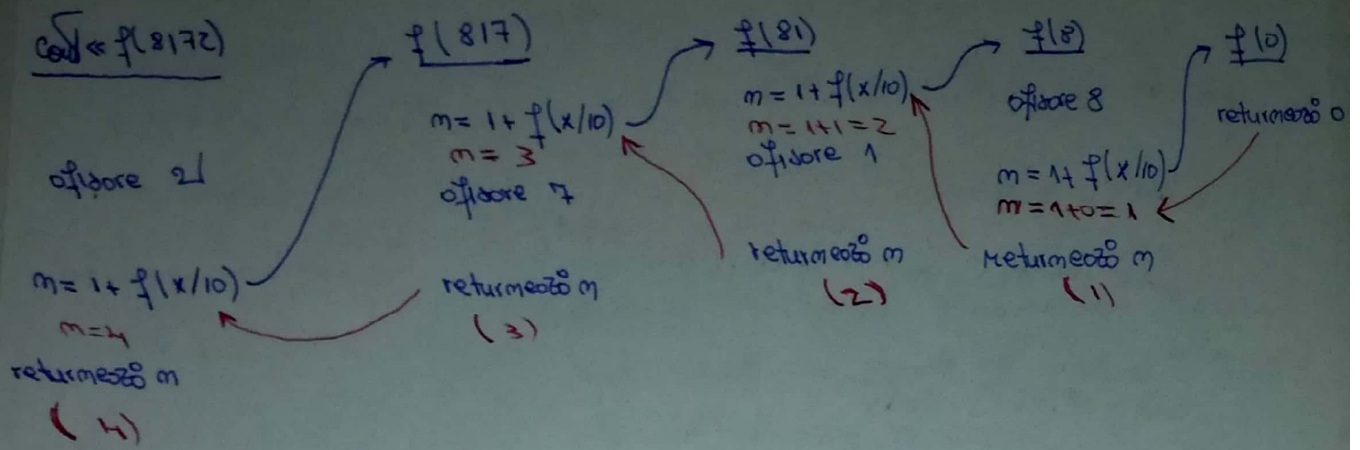 cout << f(8172)
afișare 2
n = 1 + f(x/10)
n = 4
returnează n
(4)
f(817)
n = 1 + f(x/10)
n = 3
afișare 7
returnează n
(3)
f(81)
n = 1 + f(x/10)
n = 1+1 = 2
afișare 1
returnează n
(2)
f(8)
afișare 8
n = 1 + f(x/10)
n = 1+0 = 1
returnează n
(1)
f(0)
returnează 0